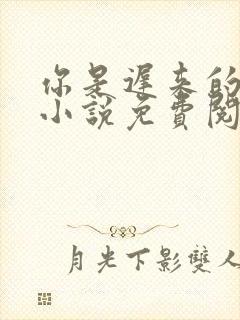 你是遲來的
小說免費閱
月光下影雙人